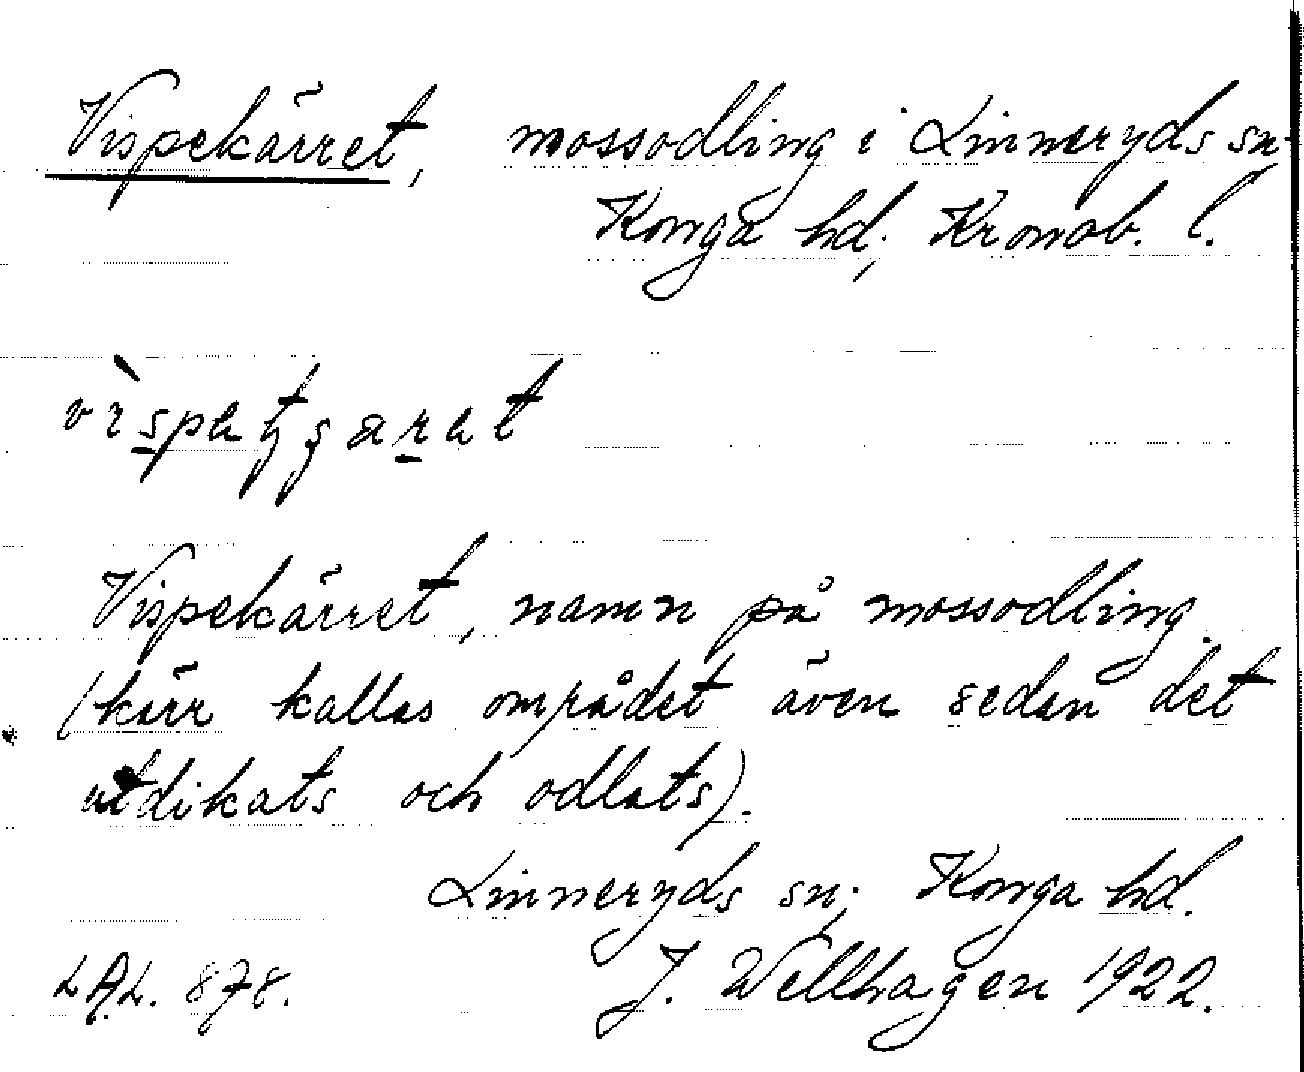 Vispekärret, mossodling i Linneryds sn.
Konga hd; Kronob. l.
Vispekärret, namn på mossodling
(kärr kallas området även sedan det
utdikats och odlats).
Linneryds sn; Konga hd.
LAL. 878. J. Wellhagen 1922.